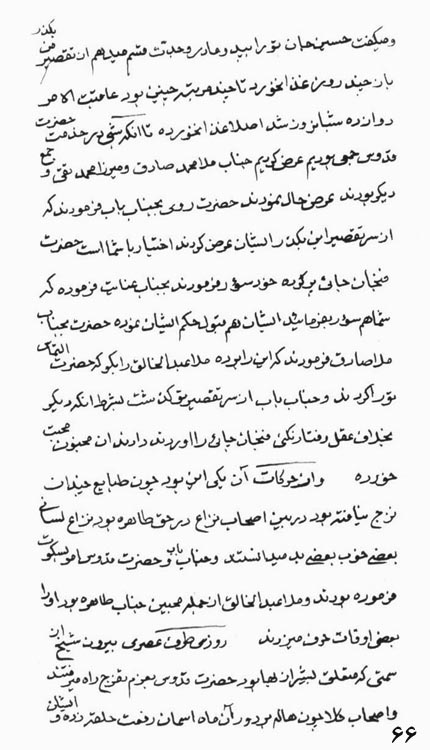 و میگفت حسین جان تو را بپدر و مادر و جدت قسم میدهم از تقصیر من بگذر
باز چند روز غذا نخورد تا چند مرتبه چنین بود عاقبت الامر
دوازده شبانه روز شد اصلا غذا نخورده تا آنکه شبی در خدمت حضرت
قدوس جمعی بودیم عرض کردیم جناب ملا محمد صادق و میرزا محمد تقی و جمع
دیگر بودند عرض حال نمودند حضرت روی بجناب باب فرمودند که
از سر تقصیر این بگذر ایشان عرض کردند اختیار با شما است حضرت
فنجان چائی پر کرده خود سؤر فرمودند بجناب عنایت فرموده که
شما هم سؤر بفرمائید ایشان هم قبول حکم ایشان نموده حضرت بجناب
ملا صادق فرمودند که این را بده ملا عبدالخالق را بگو که حضرت التماس
تو را کردند و جناب باب از سر تقصیر تو گذشت بشرط آنکه دیگر
بخلاف عقل رفتار نکنی فنجان چائی را آوردند دادند آن مجنون محبت
خورده و از حرکات آن یکی این بود چون طبایع چندان
نزج نیافته بود در بین اصحاب نزاع در حق طاهره بود نزاع لسانی
بعضی خوب بعضی بد میدانستند و جناب باب و حضرت قدوس امر بسکوت
فرموده بودند و ملا عبدالخالق از جمله محبین جناب طاهره بود او را
بعضی اوقات حرف میزدند روزی طرف عصری بیرون شیخ از
سمتی که متعلق بشیران بها بود حضرت قدوس بعزم تفرج راه میرفتند
و اصحاب کلا چون هاله بر دور آن ماه آسمان رفعت حلقه زده و ایشان
۶۶